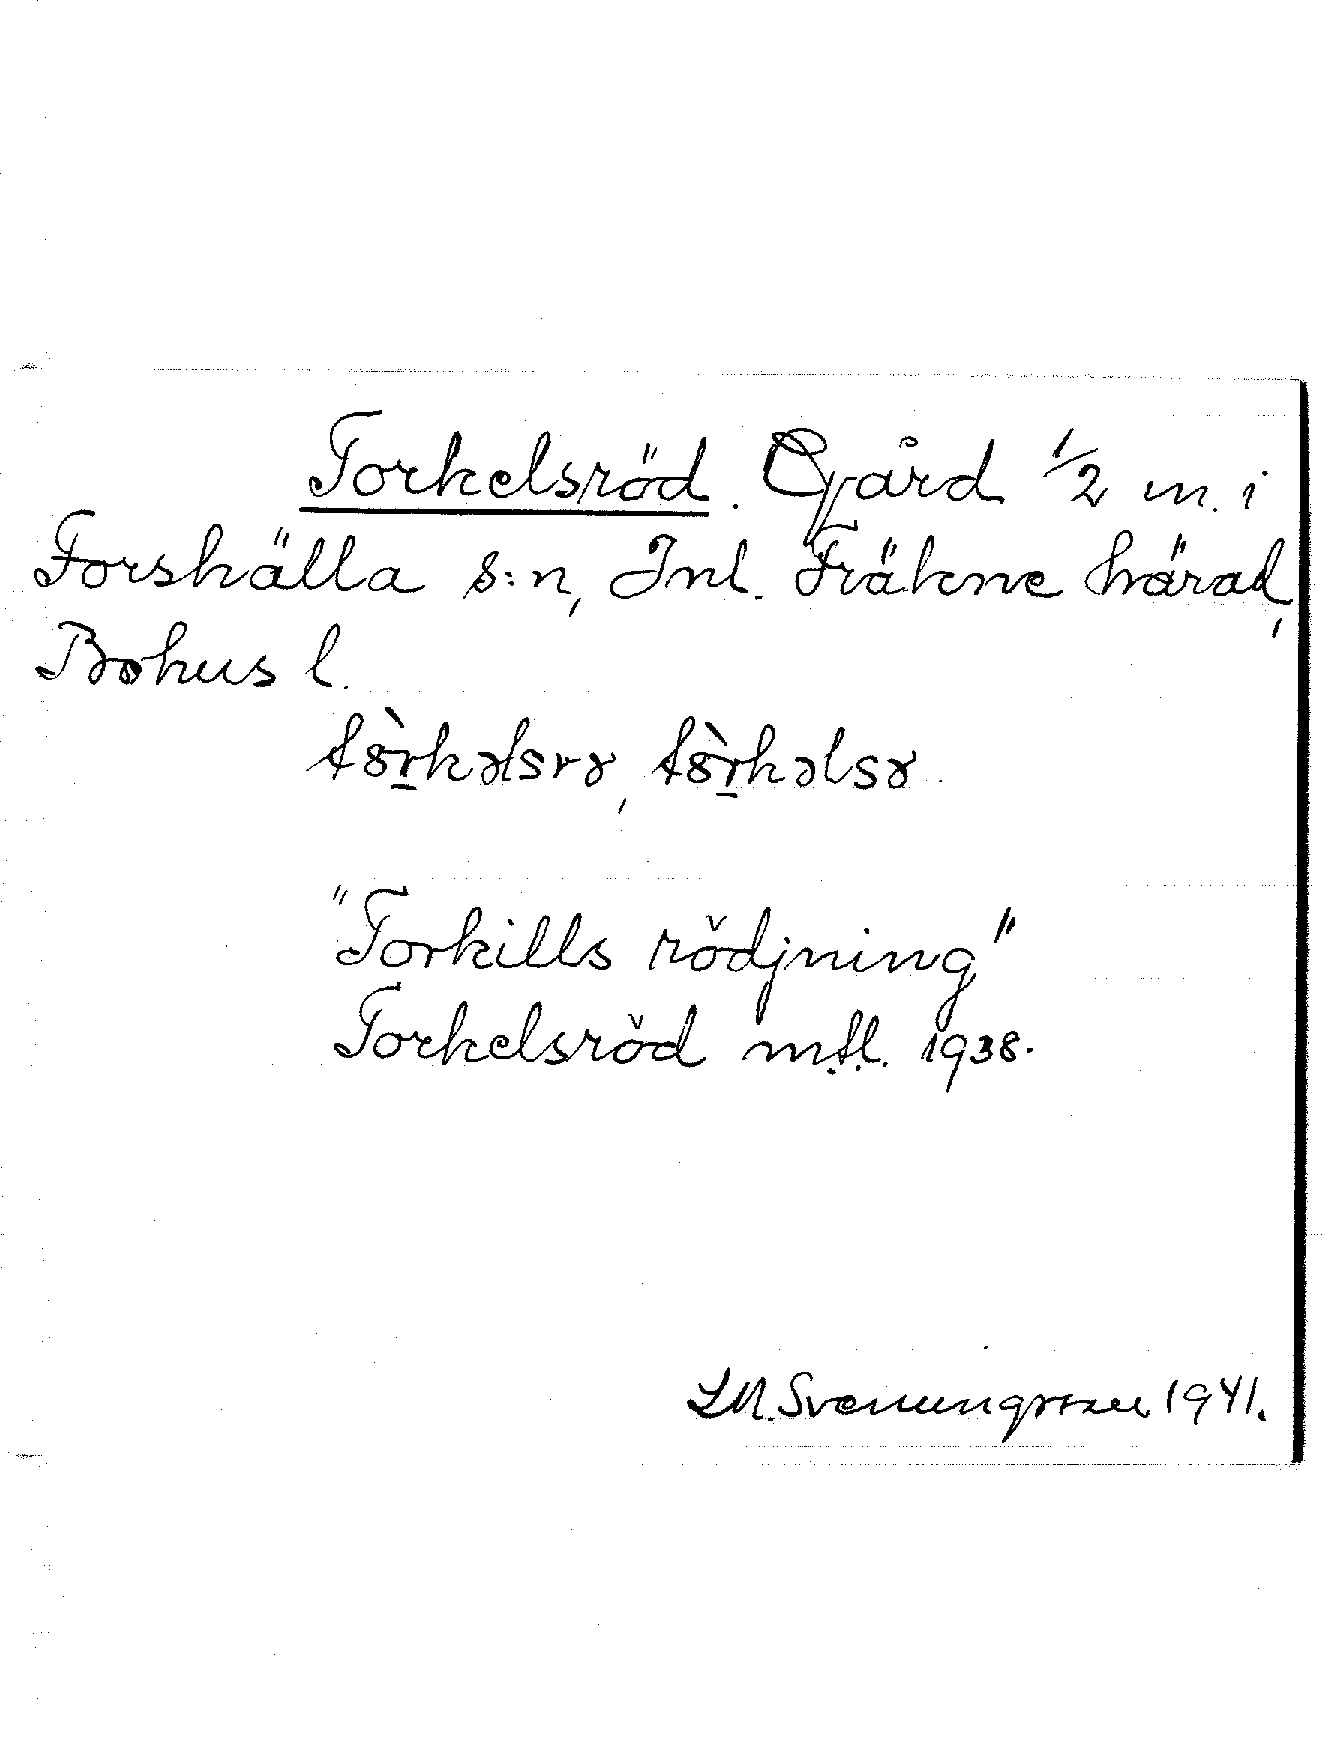 Torkelsröd. Gård 1/2 m. i
Forshälla s:n, Inl. Fräkne härad,
Bohus l.
"Torkills rödjning"
Torkelsröd m.fl. 1938.
S.M. Svenungsson 1941.